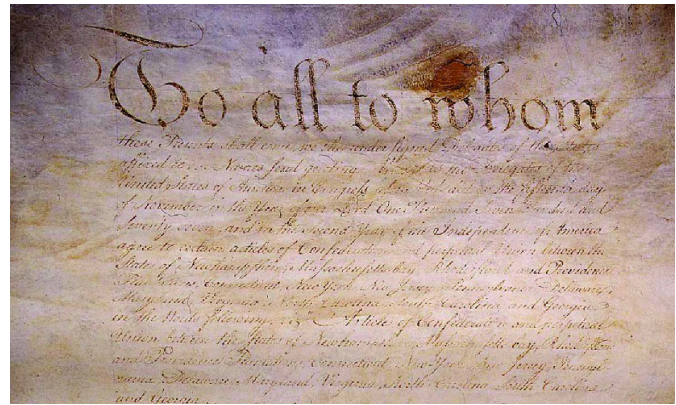 To all to whom
these Presents shall come, we the under signed Delegates of the States
affixed to our Names send greeting. Whereas the Delegates of the
United States of America in Congress assembled did on the fifteenth day
of November in the Year of our Lord One Thousand Seven Hundred and
Seventy seven, and in the Second Year of the Independence of America
agree to certain articles of Confederation and perpetual Union between the
States of Newhampshire, Massachusetts-bay, Rhodeisland and Providence
Plantations, Connecticut, New York, New Jersey, Pennsylvania, Delaware,
Maryland, Virginia, North-Carolina, South-Carolina and Georgia
in the Words following, viz. Articles of Confederation and perpetual
Union between the States of Newhampshire, Massachusetts-bay, Rhodeisland
and Providence Plantations, Connecticut, New-York, New-Jersey, Pennsyl
vania, Delaware, Maryland, Virginia, North-Carolina, South-Carolina
and Georgia